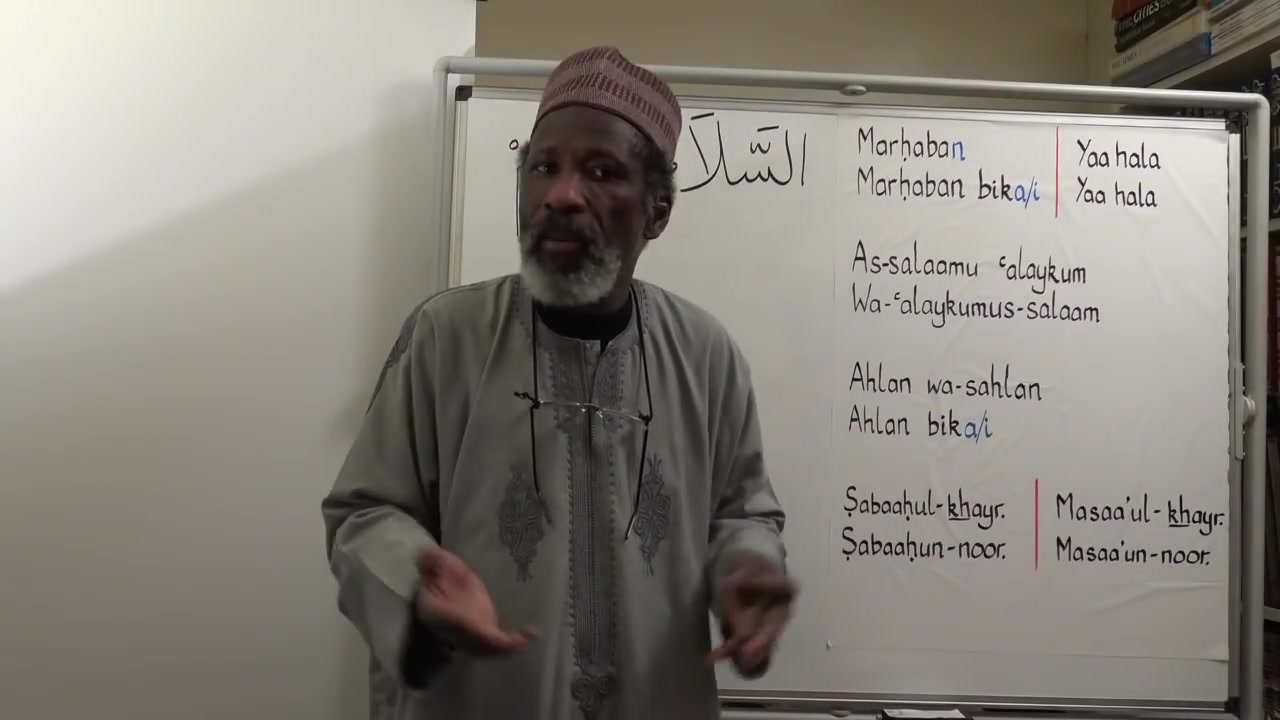 السَّلاَ
Marḥaban
Marḥaban bika/i
Yaa hala
Yaa hala
As-salaamu ʿalaykum
Wa-ʿalaykumus-salaam
Ahlan wa-sahlan
Ahlan bika/i
Ṣabaaḥul-khayr.
Ṣabaaḥun-noor.
Masaa'ul-khayr.
Masaa'un-noor.
CITIES